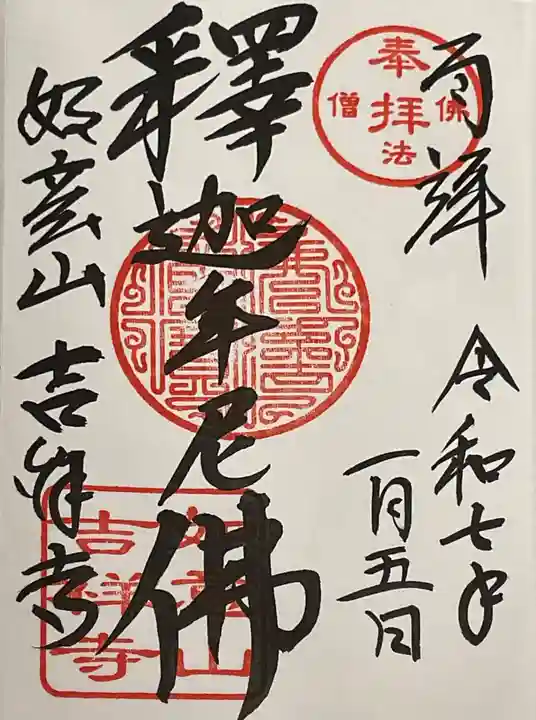 奉拝
佛
法
僧
奉拝
令和七年
一月五日
釋迦牟尼佛
如意山
吉祥寺
如意山
吉祥寺